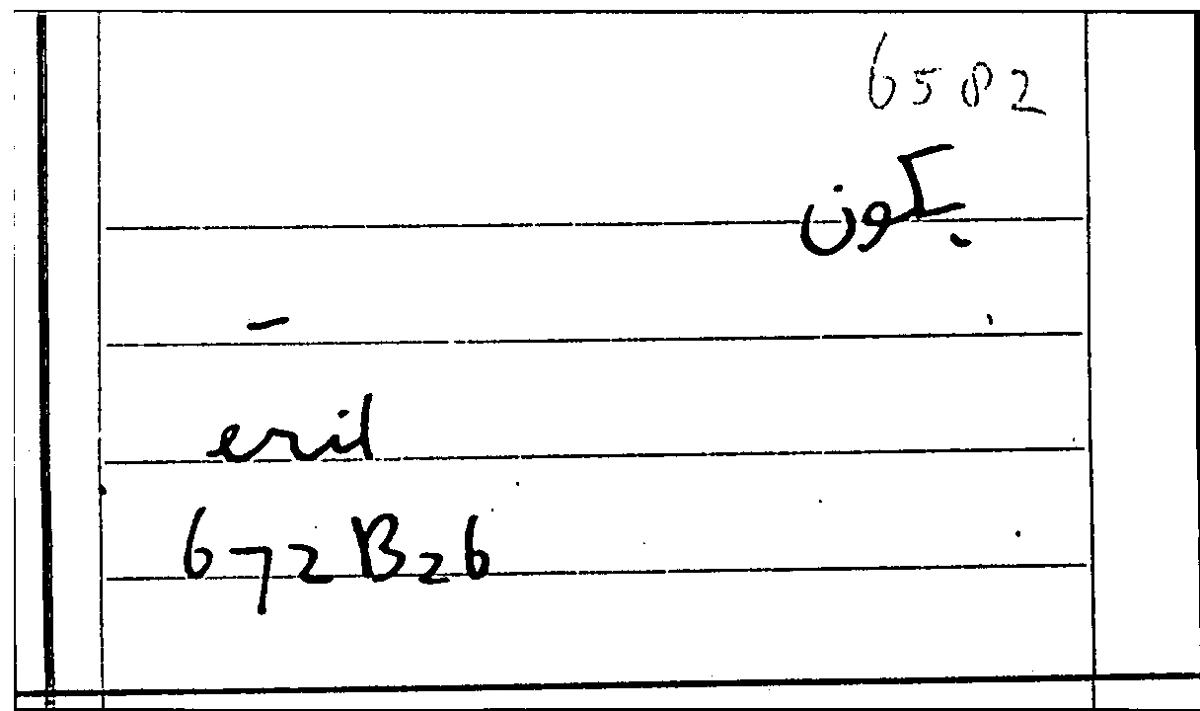 6582
بكون
-
eril
672B26